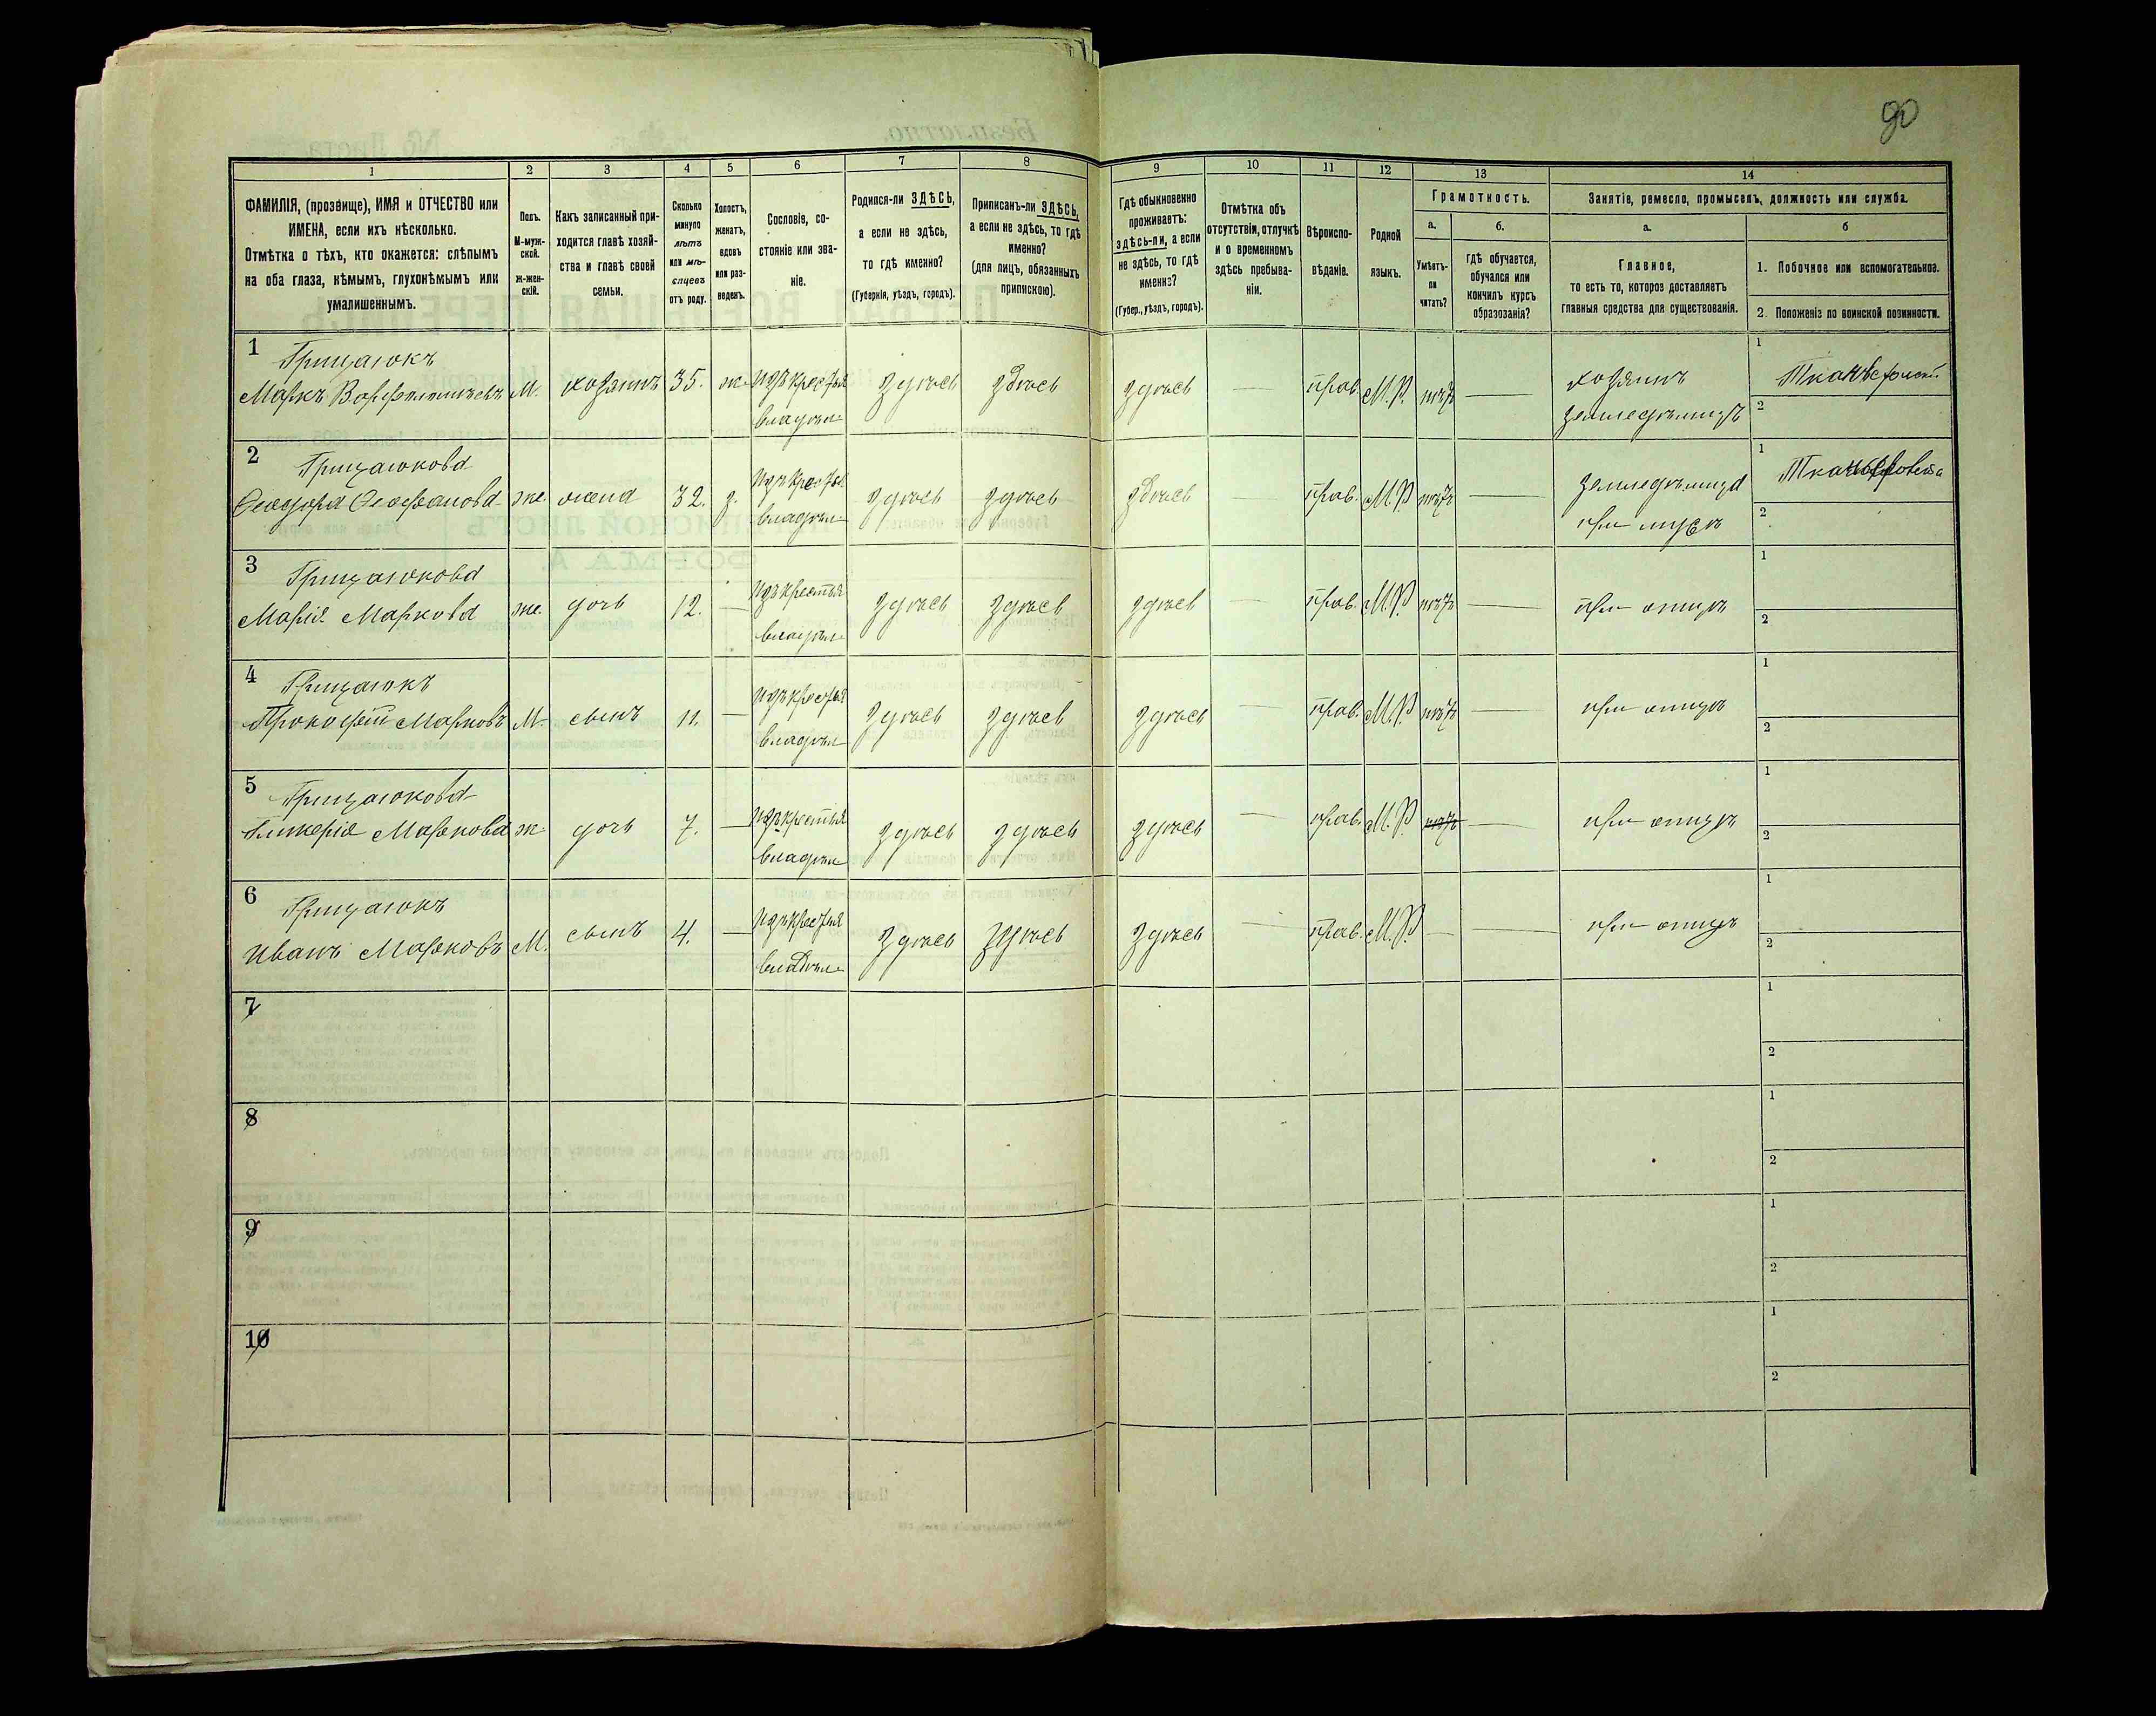 90
1
2
3
4
5
6
7
8
9
10
11
12
13
14
ФАМИЛІЯ, (прозвище), ИМЯ и ОТЧЕСТВО или
ИМЕНА, если ихъ нѣсколько.
Отмѣтка о тѣхъ, кто окажется: слѣпымъ
на оба глаза, нѣмымъ, глухонѣмымъ или
умалишеннымъ.
Полъ.
М-муж-
ской.
ж-жен-
скій.
Какъ записанный при-
ходится главѣ хозяй-
ства и главѣ своей
семьи.
Сколько
минуло
лѣтъ
или мѣ-
сяцевъ
отъ роду.
Холостъ,
женатъ,
вдовъ
или раз-
веденъ.
Сословіе, со-
стояніе или зва-
ніе.
Родился-ли ЗДѢСЬ,
а если не здѣсь,
то гдѣ именно?
(Губернія, уѣздъ, городъ).
Приписанъ-ли ЗДѢСЬ,
а если не здѣсь, то гдѣ
именно?
(для лицъ, обязанныхъ
припискою).
Гдѣ обыкновенно
проживаетъ:
здѣсь-ли, а если
не здѣсь, то гдѣ
именно?
(Губер., уѣздъ, городъ).
Отмѣтка объ
отсутствіи, отлучкѣ
и о временномъ
здѣсь пребыва-
ніи.
Вѣроиспо-
вѣданіе.
Родной
языкъ.
Грамотность.
а.
б.
Умѣетъ-
ли
читать?
гдѣ обучается,
обучался или
кончилъ курсъ
образованія?
Занятіе, ремесло, промыселъ, должность или служба.
а.
б
Главное,
то есть то, которое доставляетъ
главныя средства для существованія.
1. Побочное или вспомогательное.
2. Положеніе по воинской повинности.
1
Грицаюкъ
Маркъ М. хозяинъ 35. ж. Изъ крестья здѣсь здѣсь здѣсь — прав. М.Р. нѣтъ — хозяинъ
владѣл землед
1
2
2
Грицаюкова
Феодора Феофанова же жена 32. з. Изъ крестья здѣсь здѣсь здѣсь — прав. М.Р. нѣтъ —
владѣл при
1
2
3
Грицаюкова
Марія Маркова же. дочь 12. — Изъ крестья здѣсь здѣсь здѣсь — прав. М.Р. нѣтъ — при отцѣ
владѣл
1
2
4
Грицаюкъ
Прокофій Марковъ М. сынъ 11. — Изъ крестья здѣсь здѣсь здѣсь — прав. М.Р. нѣтъ — при отцѣ
владѣл
1
2
5
Грицаюкова
Гликерія Маркова ж. дочь 7. — Изъ крестья здѣсь здѣсь здѣсь — прав. М.Р. нѣтъ — при отцѣ
владѣл
1
2
6
Грицаюкъ
Иванъ Марковъ М. сынъ 4. — Изъ крестья здѣсь здѣсь здѣсь — прав. М.Р. — — при отцѣ
владѣл
1
2
7
1
2
8
1
2
9
1
2
10
1
2